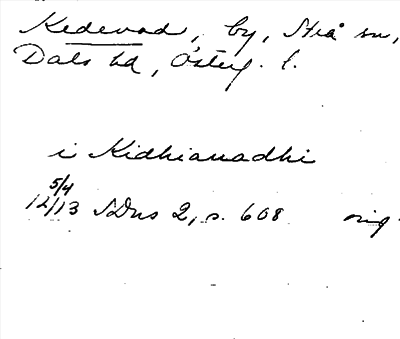 Kedevad, by, Strå sn,
Dals hd, Österg. l.
i Kidhiauadhi
5/4
12/13 SDns 2, s. 608 orig.